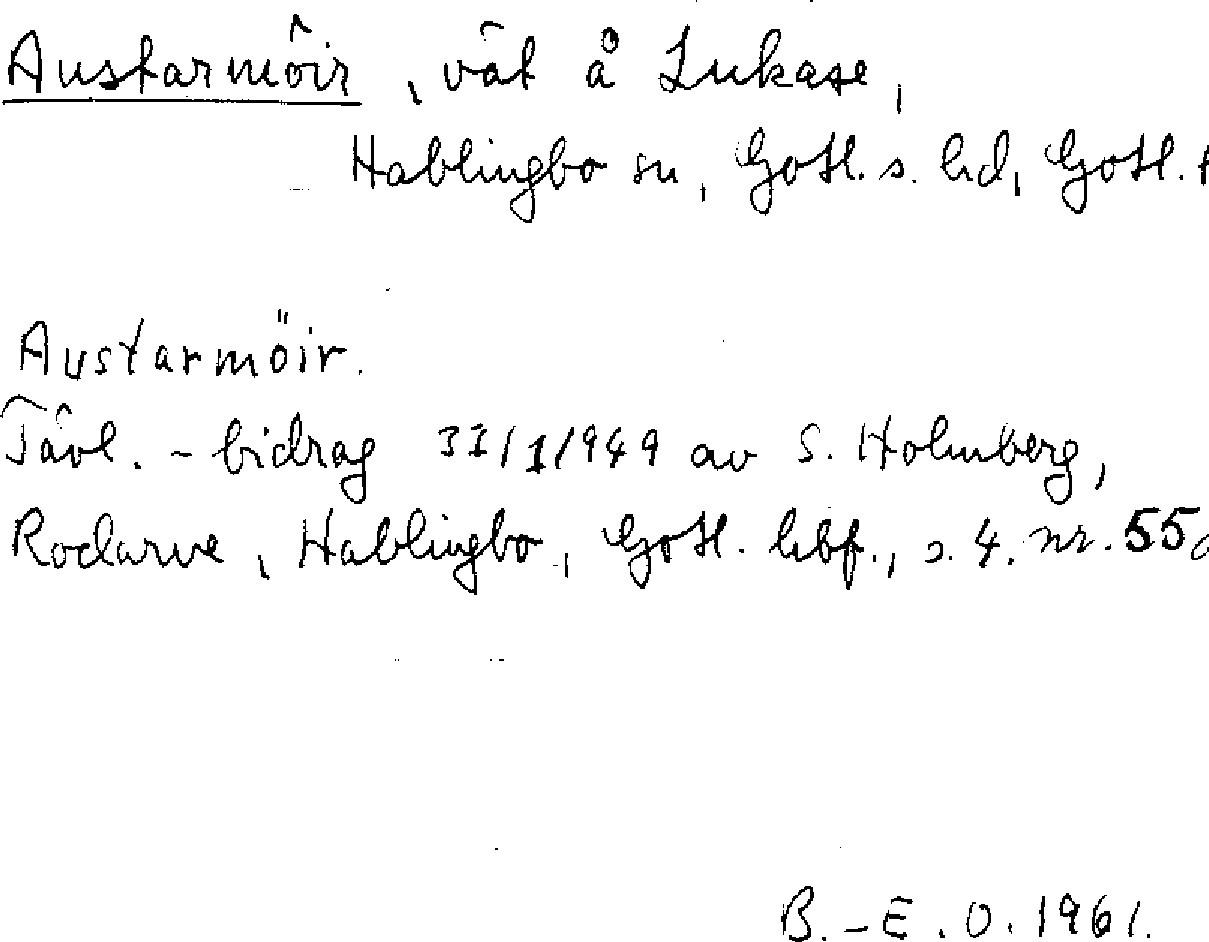 Austarmöir, vät å Lukase,
Hablingbo sn, Gotl. s. hd, Gotl. l
Austarmöir.
Tävl. - bidrag 31/1/1949 av S. Holmberg,
Rodarve, Hablingbo, Gotl. hbf., s. 4. nr. 55
B.-E. O. 1961.